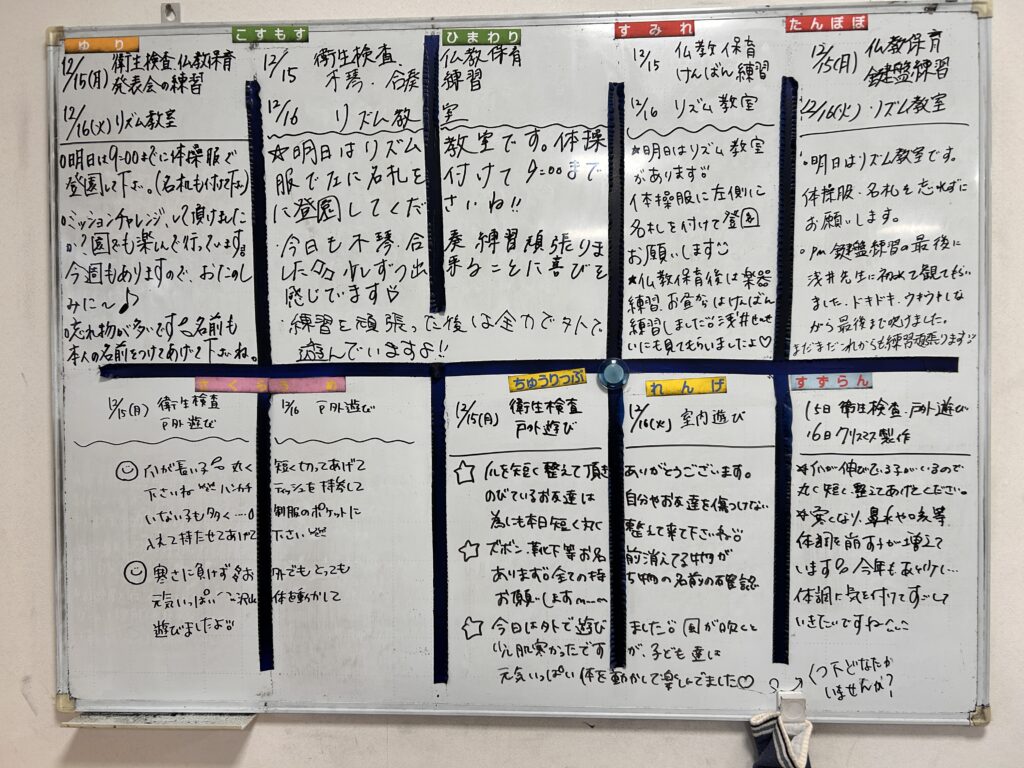 ゆり
12/15(月) 衛生検査.仏教保育
発表会の練習
12/16(火) リズム教室
○明日は9:00までに体操服で
登園して下さい。(名札も付けて下さい)
○ミッションチャレンジ、して頂けました
か?園でも楽しんで行っています。
今週もありますので、おたのし
みに〜♪
○忘れ物が多いです 名前も
本人の名前をつけてあげて下さいね。
こすもす
ひまわり
12/15 衛生検査. 仏教保育
木琴・合奏 練習
12/16 リズム教室
☆明日はリズム教室です。体操
服で左に名札を付けて9:00まで
に登園してくださいね!!
・今日も木琴・合奏練習頑張りま
した 少しずつ出来ることに喜びを
感じています♡
・練習を頑張った後は全力で外で
遊んでいますよ!!
すみれ
12/15 仏教保育
けんばん練習
12/16 リズム教室
★明日はリズム教室
があります
体操服に左側に
名札を付けて登園
お願いします
★仏教保育後は楽器
練習、お昼からはけんばん
練習しました 浅井せんせ
いにも見てもらいましたよ♡
たんぽぽ
12/15(月) 仏教保育
鍵盤練習
12/16(火)・リズム教室
○明日はリズム教室です。
体操服・名札を忘れずに
お願いします。
○Pm 鍵盤練習の最後に
浅井先生に初めて観てもらい
ました。ドキドキ、ウキウキしな
がら最後まで吹けました。
まだまだこれからも練習頑張ります
さくら うめ
12/15(月) 衛生検査
戸外遊び
12/16 戸外遊び
爪が長い子 丸く短く切ってあげて
下さいね ハンカチティッシュを持参して
いない子も多く…○制服のポケットに
入れて持たせてあげて下さい
寒さに負けず 外でもとっても
元気いっぱい 沢山体を動かして
遊びましたよ
ちゅうりっぷ
れんげ
12/15(月) 衛生検査
戸外遊び
12/16(火) 室内遊び
☆ 爪を短く整えて頂きありがとうございます。
のびているお友達は自分やお友達を傷つけない
為にも本日短く丸く整えて来て下さいね
☆ ズボン、靴下等お名前消えてる物が
あります 全ての持ち物の名前の確認
お願いします
☆ 今日は外で遊びました 風が吹くと
少し肌寒かったですが、子ども達は
元気いっぱい体を動かして楽しんでました♡
すずらん
15日 衛生検査.戸外遊び
16日 クリスマス製作
★爪が伸びている子がいるので
丸く短く整えてあげてください。
★寒くなり、鼻水や咳等
体調を崩す子が増えて
います 今年もあと少し…
体調に気を付けてすごして
いきたいですね
くつ下どなたか
いませんか?